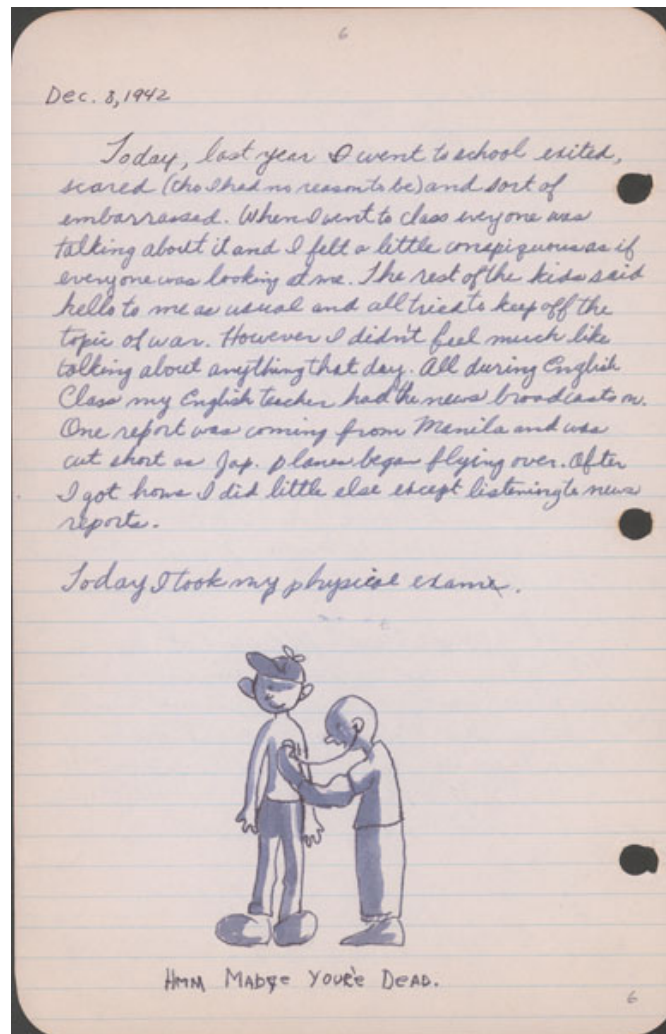 6
Dec. 8, 1942
Today, last year I went to school exited,
scared (tho I had no reason to be) and sort of
embarrassed. When I went to class everyone was
talking about it and I felt a little conspiquous as if
everyone was looking at me. The rest of the kids said
hello to me as usual and all tried to keep off the
topic of war. However I didn't feel much like
talking about anything that day. All during English
Class my English teacher had the news broadcasts on.
One report was coming from Manila and was
cut short as Jap. planes began flying over. After
I got home I did little else except listening to news
reports.
Today I took my physical exam.
HMM MABYE YOUR'E DEAD.
6